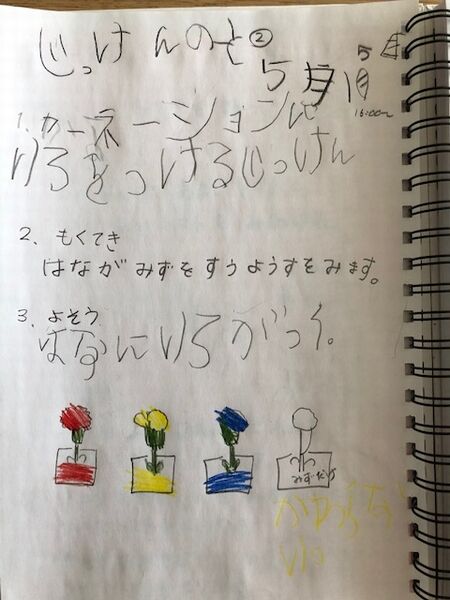 じっけんのと②
5月
5月1日
16:00~
1. カーネーションに
いろをつけるじっけん
2. もくてき
はながみずをすうようすをみます。
3. よそう
はなにいろがつく。
みずだけ
かわらな
い